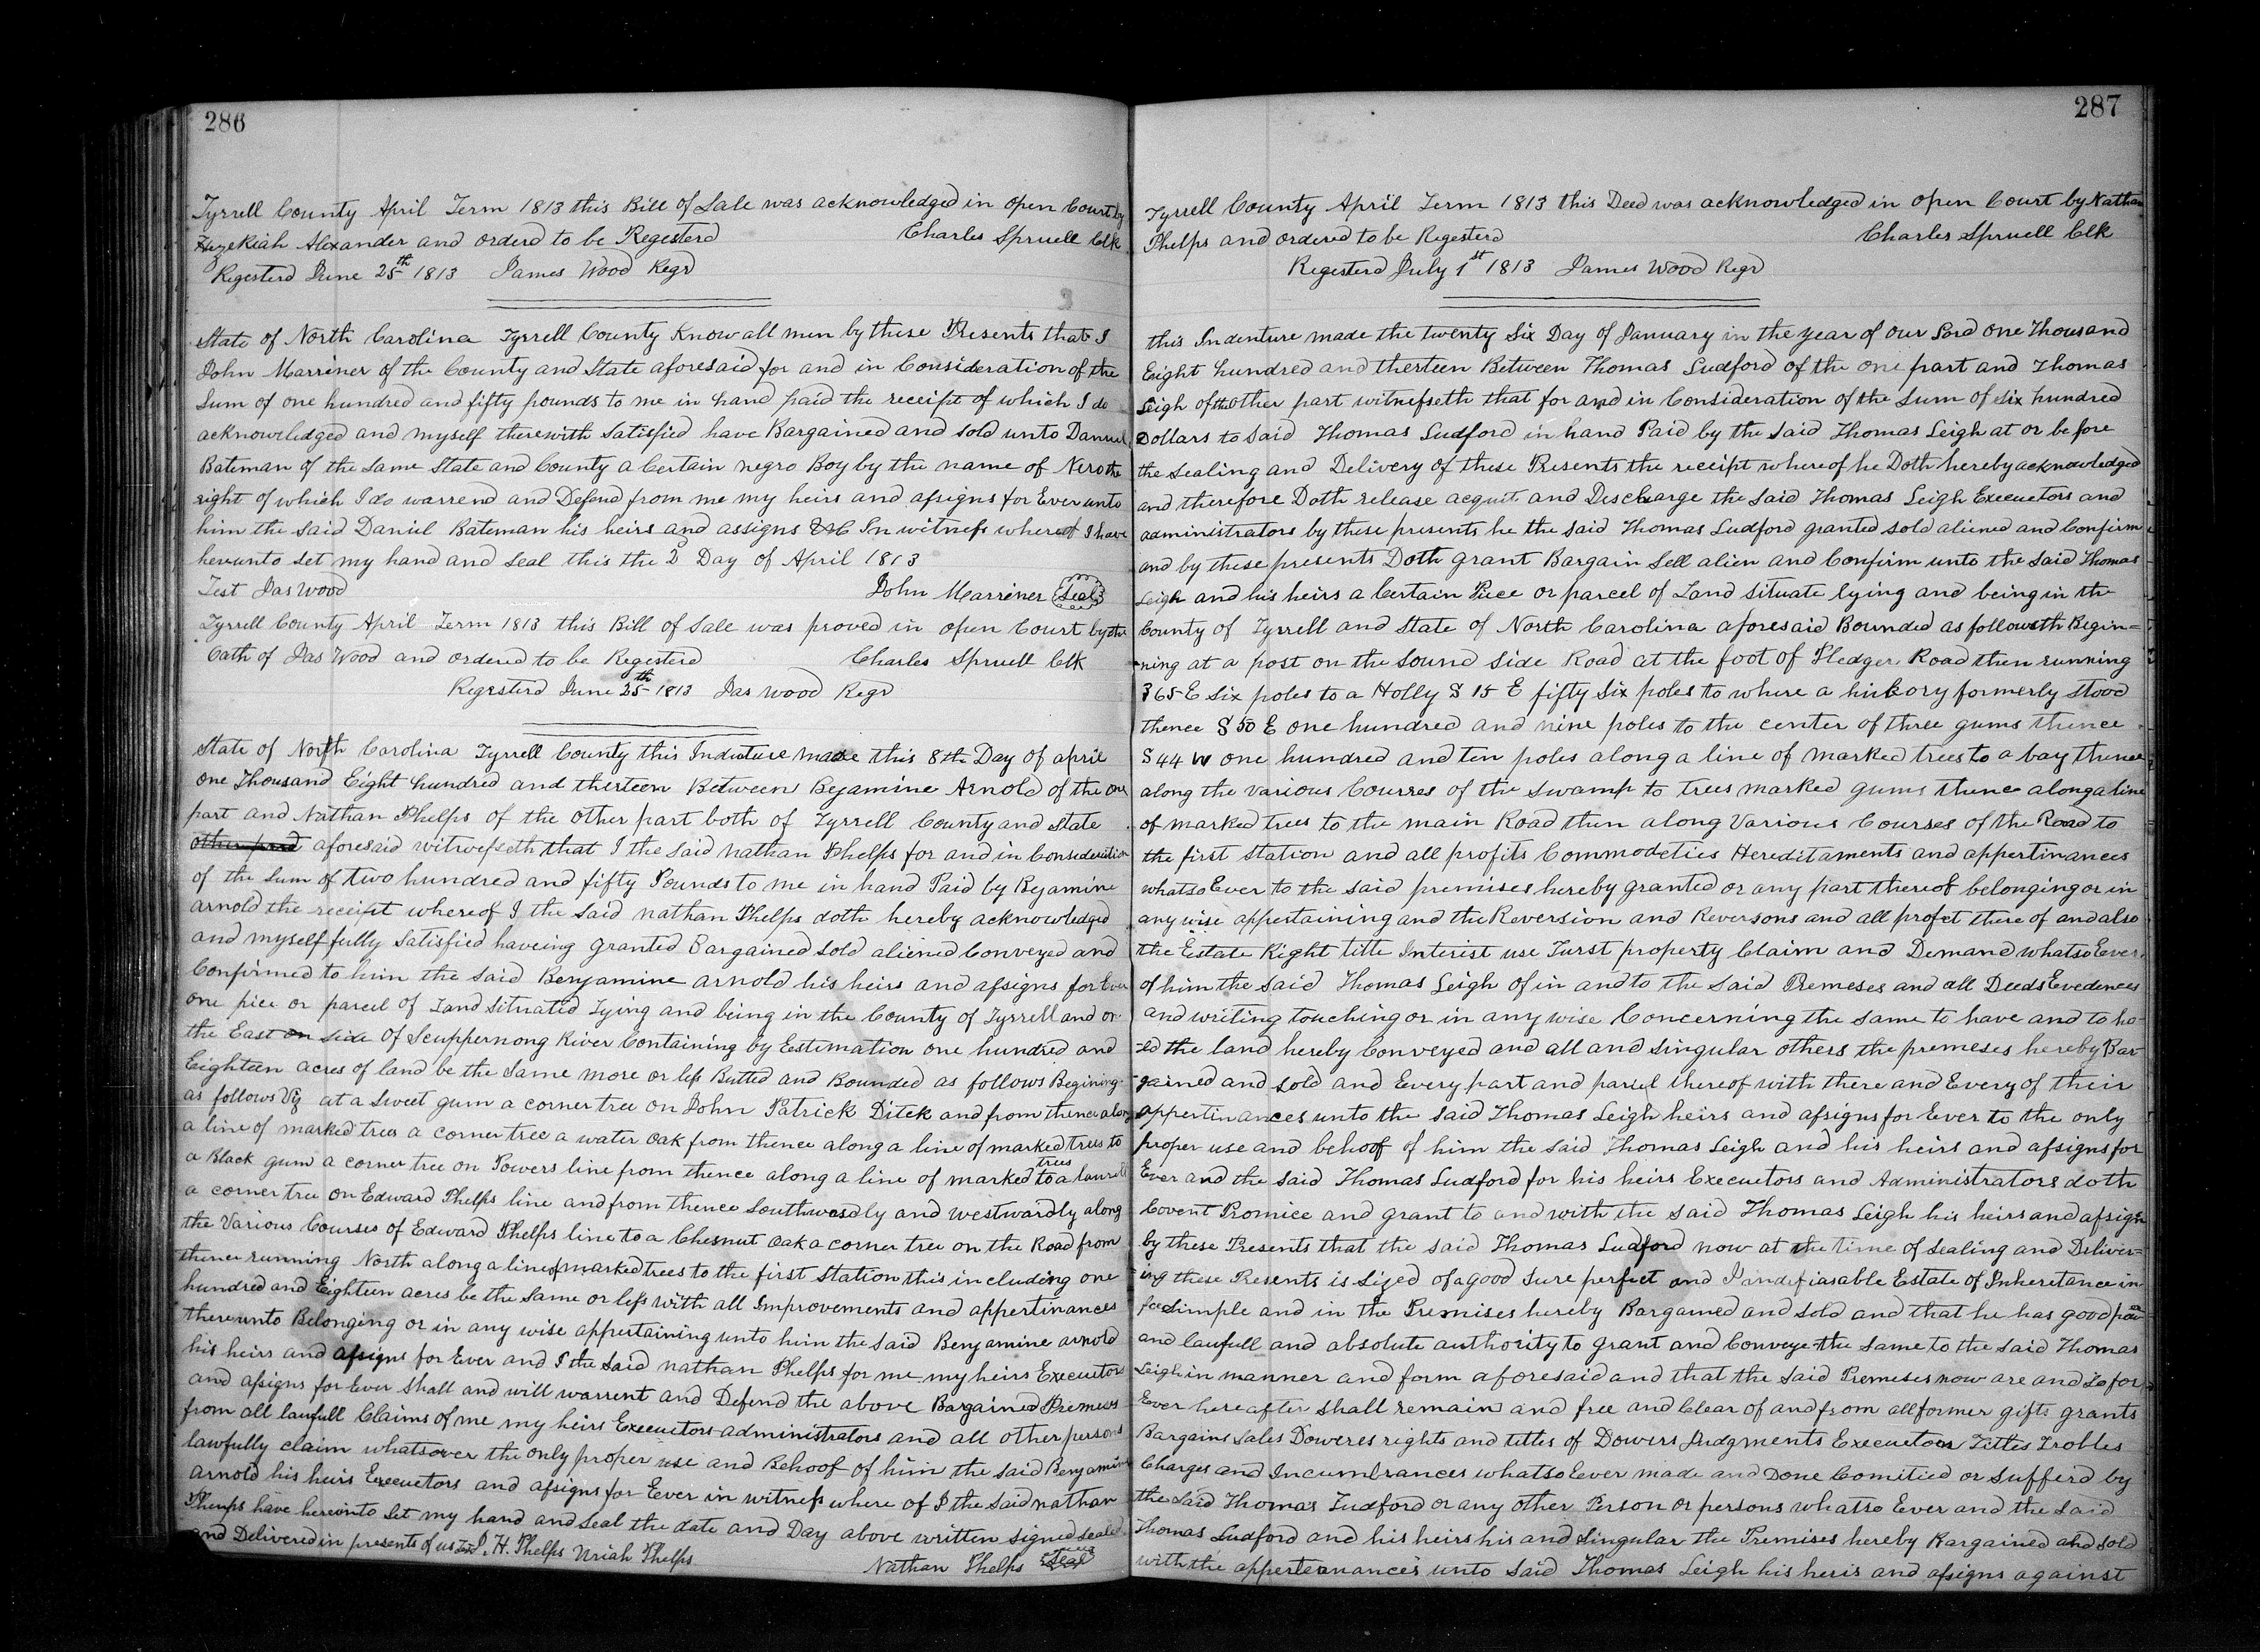 286
Tyrrell County April Term 1813 this Bill of Sale was acknowledged in open Court by
Hezekiah Alexander and orderd to be Registerd Charles Spruell Clk
Registerd June 25th 1813 James Wood Regr
State of North Carolina Tyrrell County Know all men by these Presents that I
John Marriner of the County and State aforesaid for and in Consideration of the
Sum of one hundred and fifty pounds to me in hand paid the receipt of which I do
acknowledged and myself therewith Satisfied have Bargained and sold unto Daniel
Bateman of the Same State and County a Certain negro Boy by the name of Nero the
right of which I do warrend and Defend from me my heirs and assigns for Ever unto
him the said Daniel Bateman his heirs and assigns &c In witness whereof I have
hereunto set my hand and Seal this the 2 Day of April 1813
Test Jas Wood John Marriner Seal
Tyrrell County April Term 1813 this Bill of Sale was proved in open Court by the
Oath of Jas Wood and ordered to be Registerd Charles Spruell Clk
Registerd June 25th 1813 Jas Wood Regr
State of North Carolina Tyrrell County this Indenture made this 8th Day of april
one Thousand Eight hundred and therteen Between Bejamine Arnold of the one
part and Nathan Phelps of the other part both of Tyrrell County and State
aforesaid witnesseth that I the said Nathan Phelps for and in Consideration
of the Sum of two hundred and fifty Pounds to me in hand Paid by Bejamine
arnold the receipt whereof I the said Nathan Phelps doth hereby acknowledged
and myself fully Satisfied haveing granted Bargained sold aliened Conveyed and
Confirmed to him the said Benjamine arnold his heirs and assigns for Ever
one pice or parcel of Land Situated Lying and being in the County of Tyrrell and on
the East side of Scuppernong River Containing by Eestimation one hundred and
Eighteen acres of land be the Same more or less Butted and Bounded as follows Begining
as follows Viz at a Sweet gum a corner tree on John Patrick Ditek and from thence along
a line of marked trees a corner tree a water oak from thence along a line of marked trees to
a Black gum a corner tree on Powers line from thence along a line of marked trees to a laurell
a corner tree on Edward Phelps line and from thence Southwardly and westwardly along
the Various Courses of Edward Phelps line to a Chesnut oak a corner tree on the Road from
thence running North along a line of marked trees to the first Station this including one
hundred and Eighteen acres be the Same or less with all Improvements and appertinances
thereunto Belonging or in any wise appertaining unto him the said Benjamine arnold
his heirs and assigns for Ever and I the Said Nathan Phelps for me my heirs Executors
and assigns for Ever Shall and will warrent and Defend the above Bargained Premises
from all lawfull Claims of me my heirs Executors administrators and all other persons
lawfully claim whatsover the only proper use and Behoof of him the said Benjamine
arnold his heirs Executors and assigns for Ever in witness where of I the Said Nathan
Phelps have hereunto Set my hand and Seal the date and Day above written signed sealed
and Delivered in presents of us H. Phelps Uriah Phelps Nathan Phelps Seal
287
Tyrrell County April Term 1813 this Deed was acknowledged in open Court by Nathan
Phelps and ordered to be Registerd Charles Spruell Clk
Registerd July 1st 1813 James Wood Regr
this Indenture made the twenty Six Day of January in the year of our Lord one Thousand
Eight hundred and therteen Between Thomas Ludford of the one part and Thomas
Leigh of the other part witnesseth that for and in Consideration of the Sum of Six hundred
Dollars to Said Thomas Ludford in hand Paid by the Said Thomas Leigh at or before
the Sealing and Delivery of these Presents the receipt whereof he Doth hereby acknowledged
and therefore Doth release acquit and Descharge the Said Thomas Leigh Executors and
administrators by these presents he the Said Thomas Ludford granted sold aliened and Confirm
and by these presents Doth grant Bargain Sell alien and Confirm unto the Said Thomas
Leigh and his heirs a Certain Piece or parcel of Land situate lying and being in the
County of Tyrrell and State of North Carolina aforesaid Bounded as followeth Begin=
ning at a post on the Sound side Road at the foot of Pledger Road then running
S 65 E six poles to a Holly S 15 E fifty six poles to where a hickory formerly stood
thence S 50 E one hundred and nine poles to the center of three gums thence
S 44 W one hundred and ten poles along a line of marked trees to a bay thence
along the various Courses of the Swamp to trees marked gums thence along a line
of marked trees to the main Road then along Various Courses of the Road to
the first station and all profits Commodeties Hereditaments and appertinances
whatso Ever to the Said premises hereby granted or any part thereof belonging or in
any wise appertaining and the Reversion and Reversons and all profet there of and also
the Estate Right title Interist use Turst property Claim and Demand whatso Ever
of him the Said Thomas Leigh of in and to the Said Premeses and all Deeds Evedences
and writing touching or in any wise Concerning the same to have and to ho-
ld the land hereby Conveyed and all and singular others the premeses hereby Bar-
gained and sold and Every part and parcel thereof with there and Every of their
appertinances unto the Said Thomas Leigh heirs and assigns for Ever to the only
proper use and behoof of him the said Thomas Leigh and his heirs and assigns for
Ever and the Said Thomas Ludford for his heirs Executors and Administrators doth
Covent Promice and grant to and with the Said Thomas Leigh his heirs and assigns
by these Presents that the Said Thomas Ludford now at the time of Sealing and Deliver=
ing these Presents is Sized of a good Sure perfect and indefiasable Estate of Inheretance in
fee Simple and in the Premises hereby Bargained and sold and that he has good power
and laufull and absolute authority to grant and Conveye the same to the Said Thomas
Leigh in manner and form aforesaid and that the Said Premeses now are and So for
Ever here after shall remain and free and Clear of and from all former gifts grants
Bargains Sales Doweres rights and titles of Dowers Judgments Executors Tittes Trobles
Charges and Incumbrances whatso Ever made and Done Comitied or Sufferd by
the Said Thomas Ludford or any other Person or persons whatso Ever and the Said
Thomas Ludford and his heirs his and Singular the Premises hereby Bargained and sold
with the appertenances unto Said Thomas Leigh his heris and assigns against